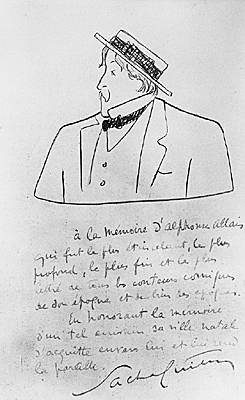 à la mémoire d'Alphonse Allais
qui fut le plus étincelant, le plus
profond, le plus fin et le plus
de tous les conteurs comiques
de son époque et de bien des époques.
En honorant la mémoire
d'un tel sa ville natale
s'acquitte envers lui et lui rend
la pareille.
Sacha Guitry